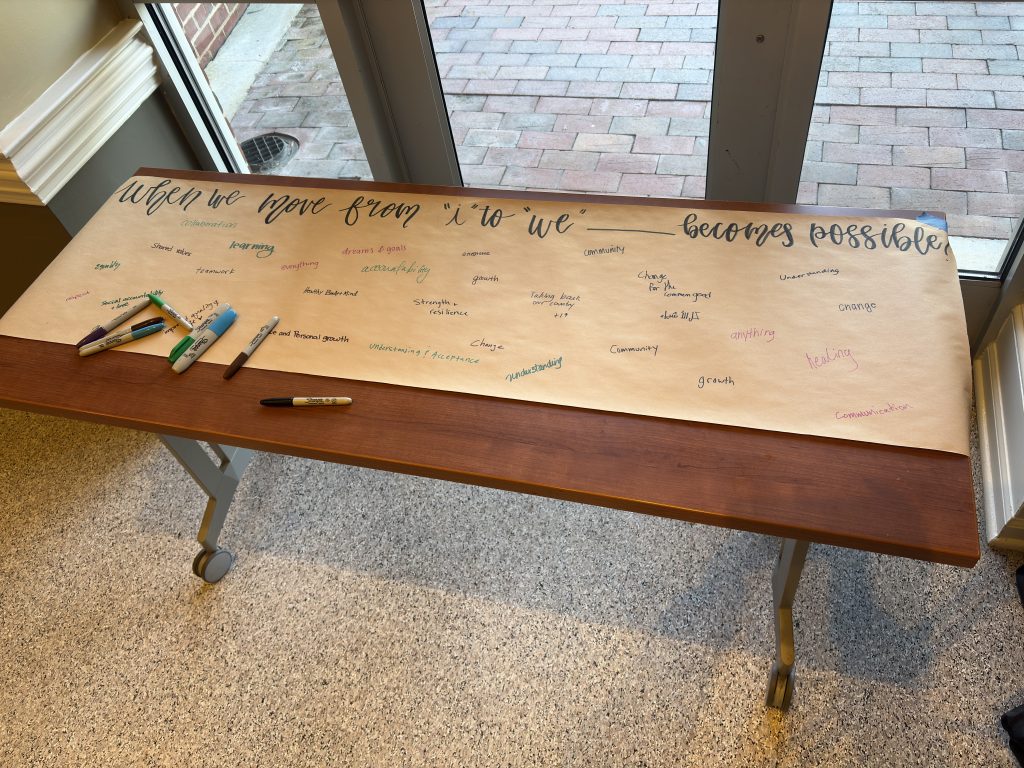 When we move from "i" to "we" ______ becomes possible!
collaboration
Shared values
learning
dreams & goals
everything
someone
community
equality
teamwork
accountability
growth
Change
for the
common good
Understanding
respect
Social accountability
+ love
Strength +
resilience
Taking back
our country
+19
change
and Personal growth
Change
Understanding & Acceptance
understanding
Community
anything
healing
growth
Communication
Sharpie